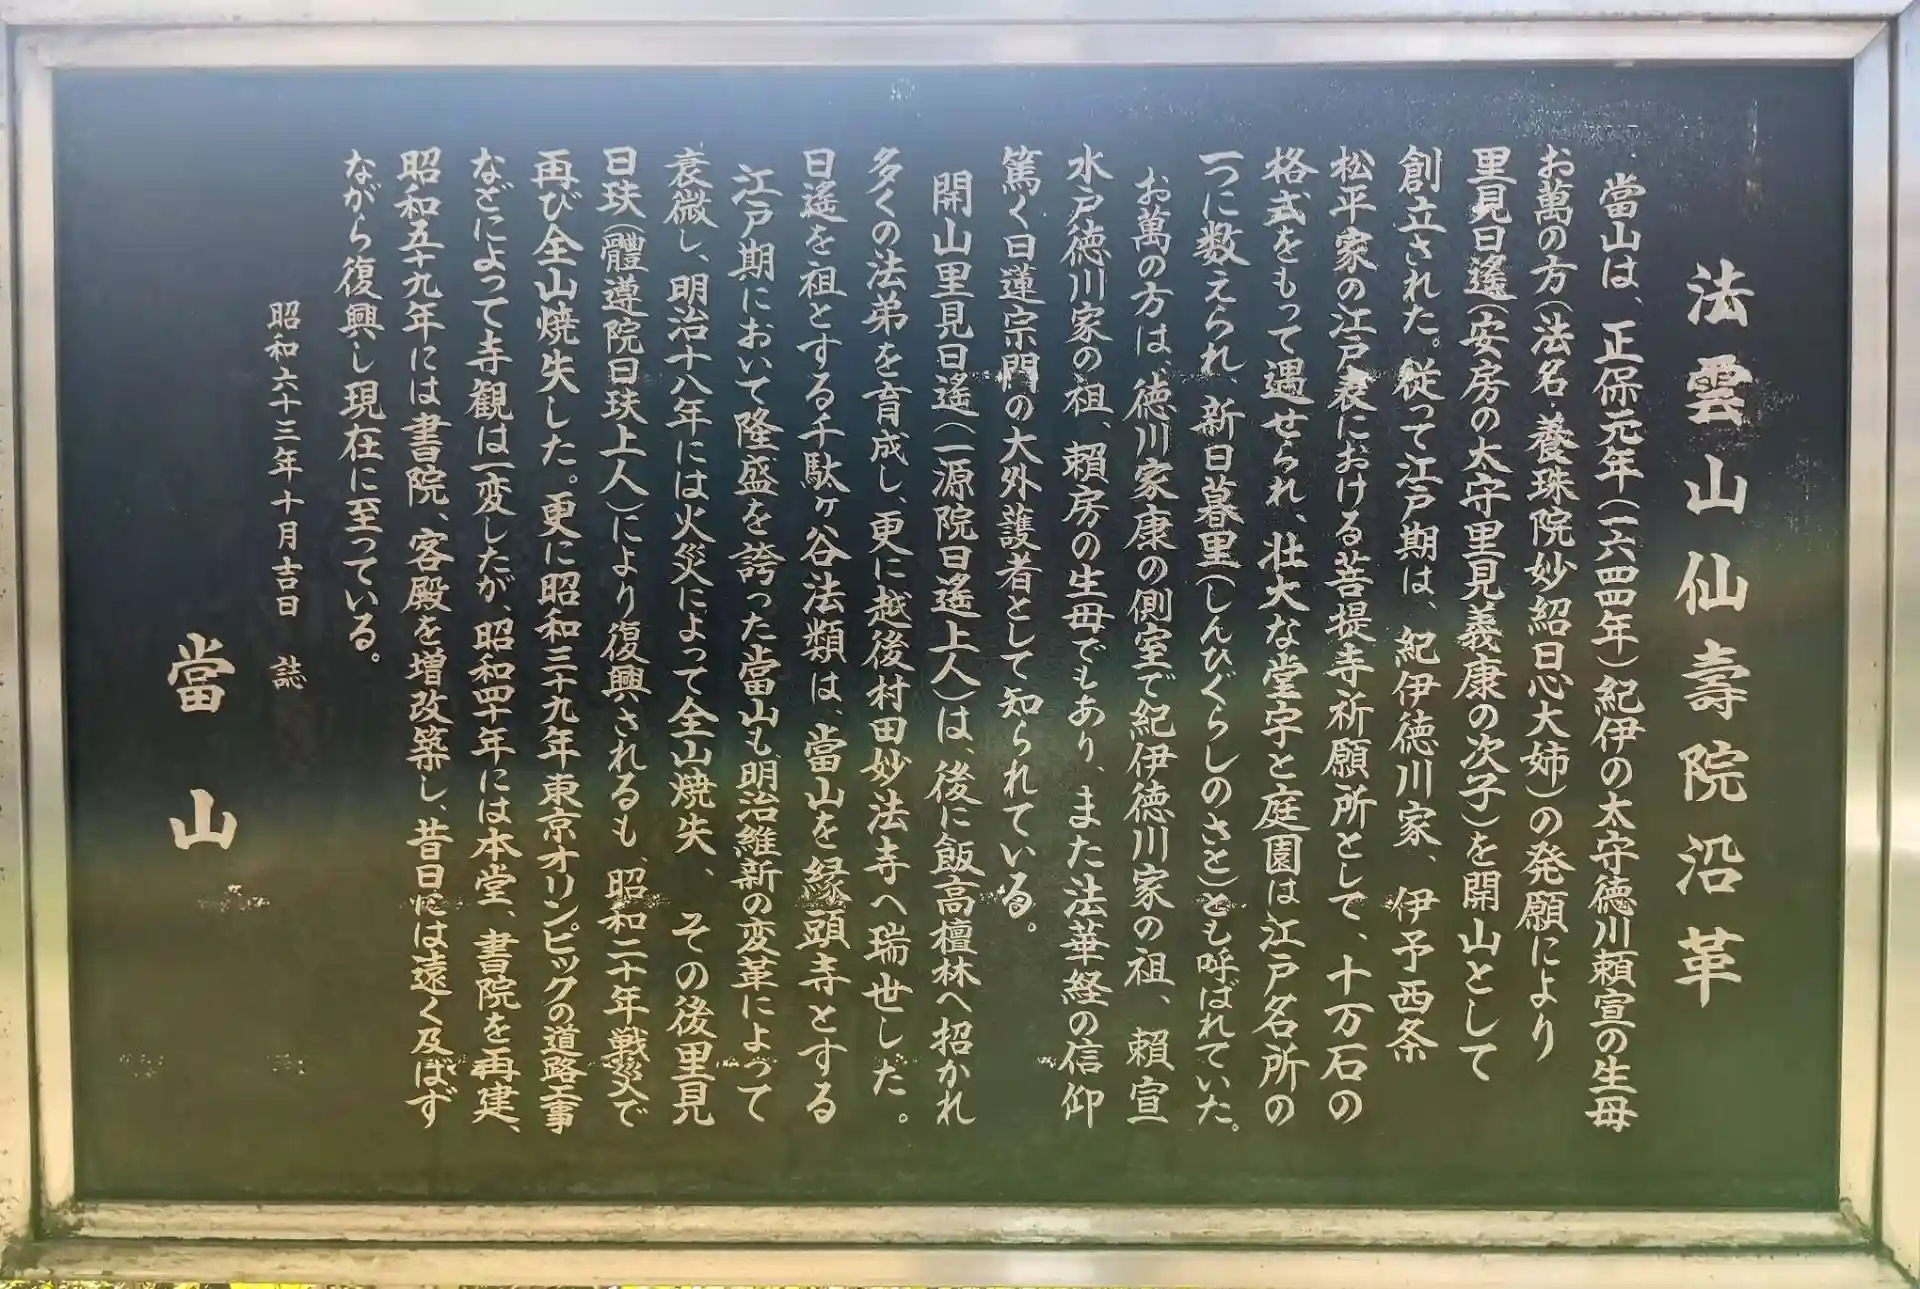 法雲山仙壽院沿革
當山は、正保元年(一六四四年)紀伊の太守徳川頼宣の生母
お萬の方(法名・養珠院妙紹日心大姉)の発願により
里見日遙(安房の太守里見義康の次子)を開山として
創立された。従って江戸期は、紀伊徳川家、伊予西条
松平家の江戸表における菩提寺祈願所として、十万石の
格式をもって遇せられ、壮大な堂宇と庭園は江戸名所の
一つに数えられ、新日暮里(しんひぐらしのさと)とも呼ばれていた。
お萬の方は、徳川家康の側室で紀伊徳川家の祖、賴宣
水戸徳川家の祖、賴房の生母でもあり、また法華経の信仰
篤く日蓮宗門の大外護者として知られている。
開山里見日遙(一源院日遙上人)は、後に飯高檀林へ招かれ
多くの法弟を育成し、更に越後村田妙法寺へ瑞世した。
日遙を祖とする千駄ヶ谷法類は、當山を縁頭寺とする
江戸期において隆盛を誇った當山も、明治維新の変革によって
衰微し、明治十八年には火災によって全山焼失、その後里見
日玞(體遵院日玞上人)により復興されるも、昭和二十年戦災で
再び全山焼失した。更に昭和三十九年東京オリンピックの道路工事
などによって寺観は一変したが、昭和四十年には本堂、書院を再建、
昭和五十九年には書院、客殿を増改築し、昔日には遠く及ばず
ながら復興し現在に至っている。
昭和六十三年十月吉日 誌
當山